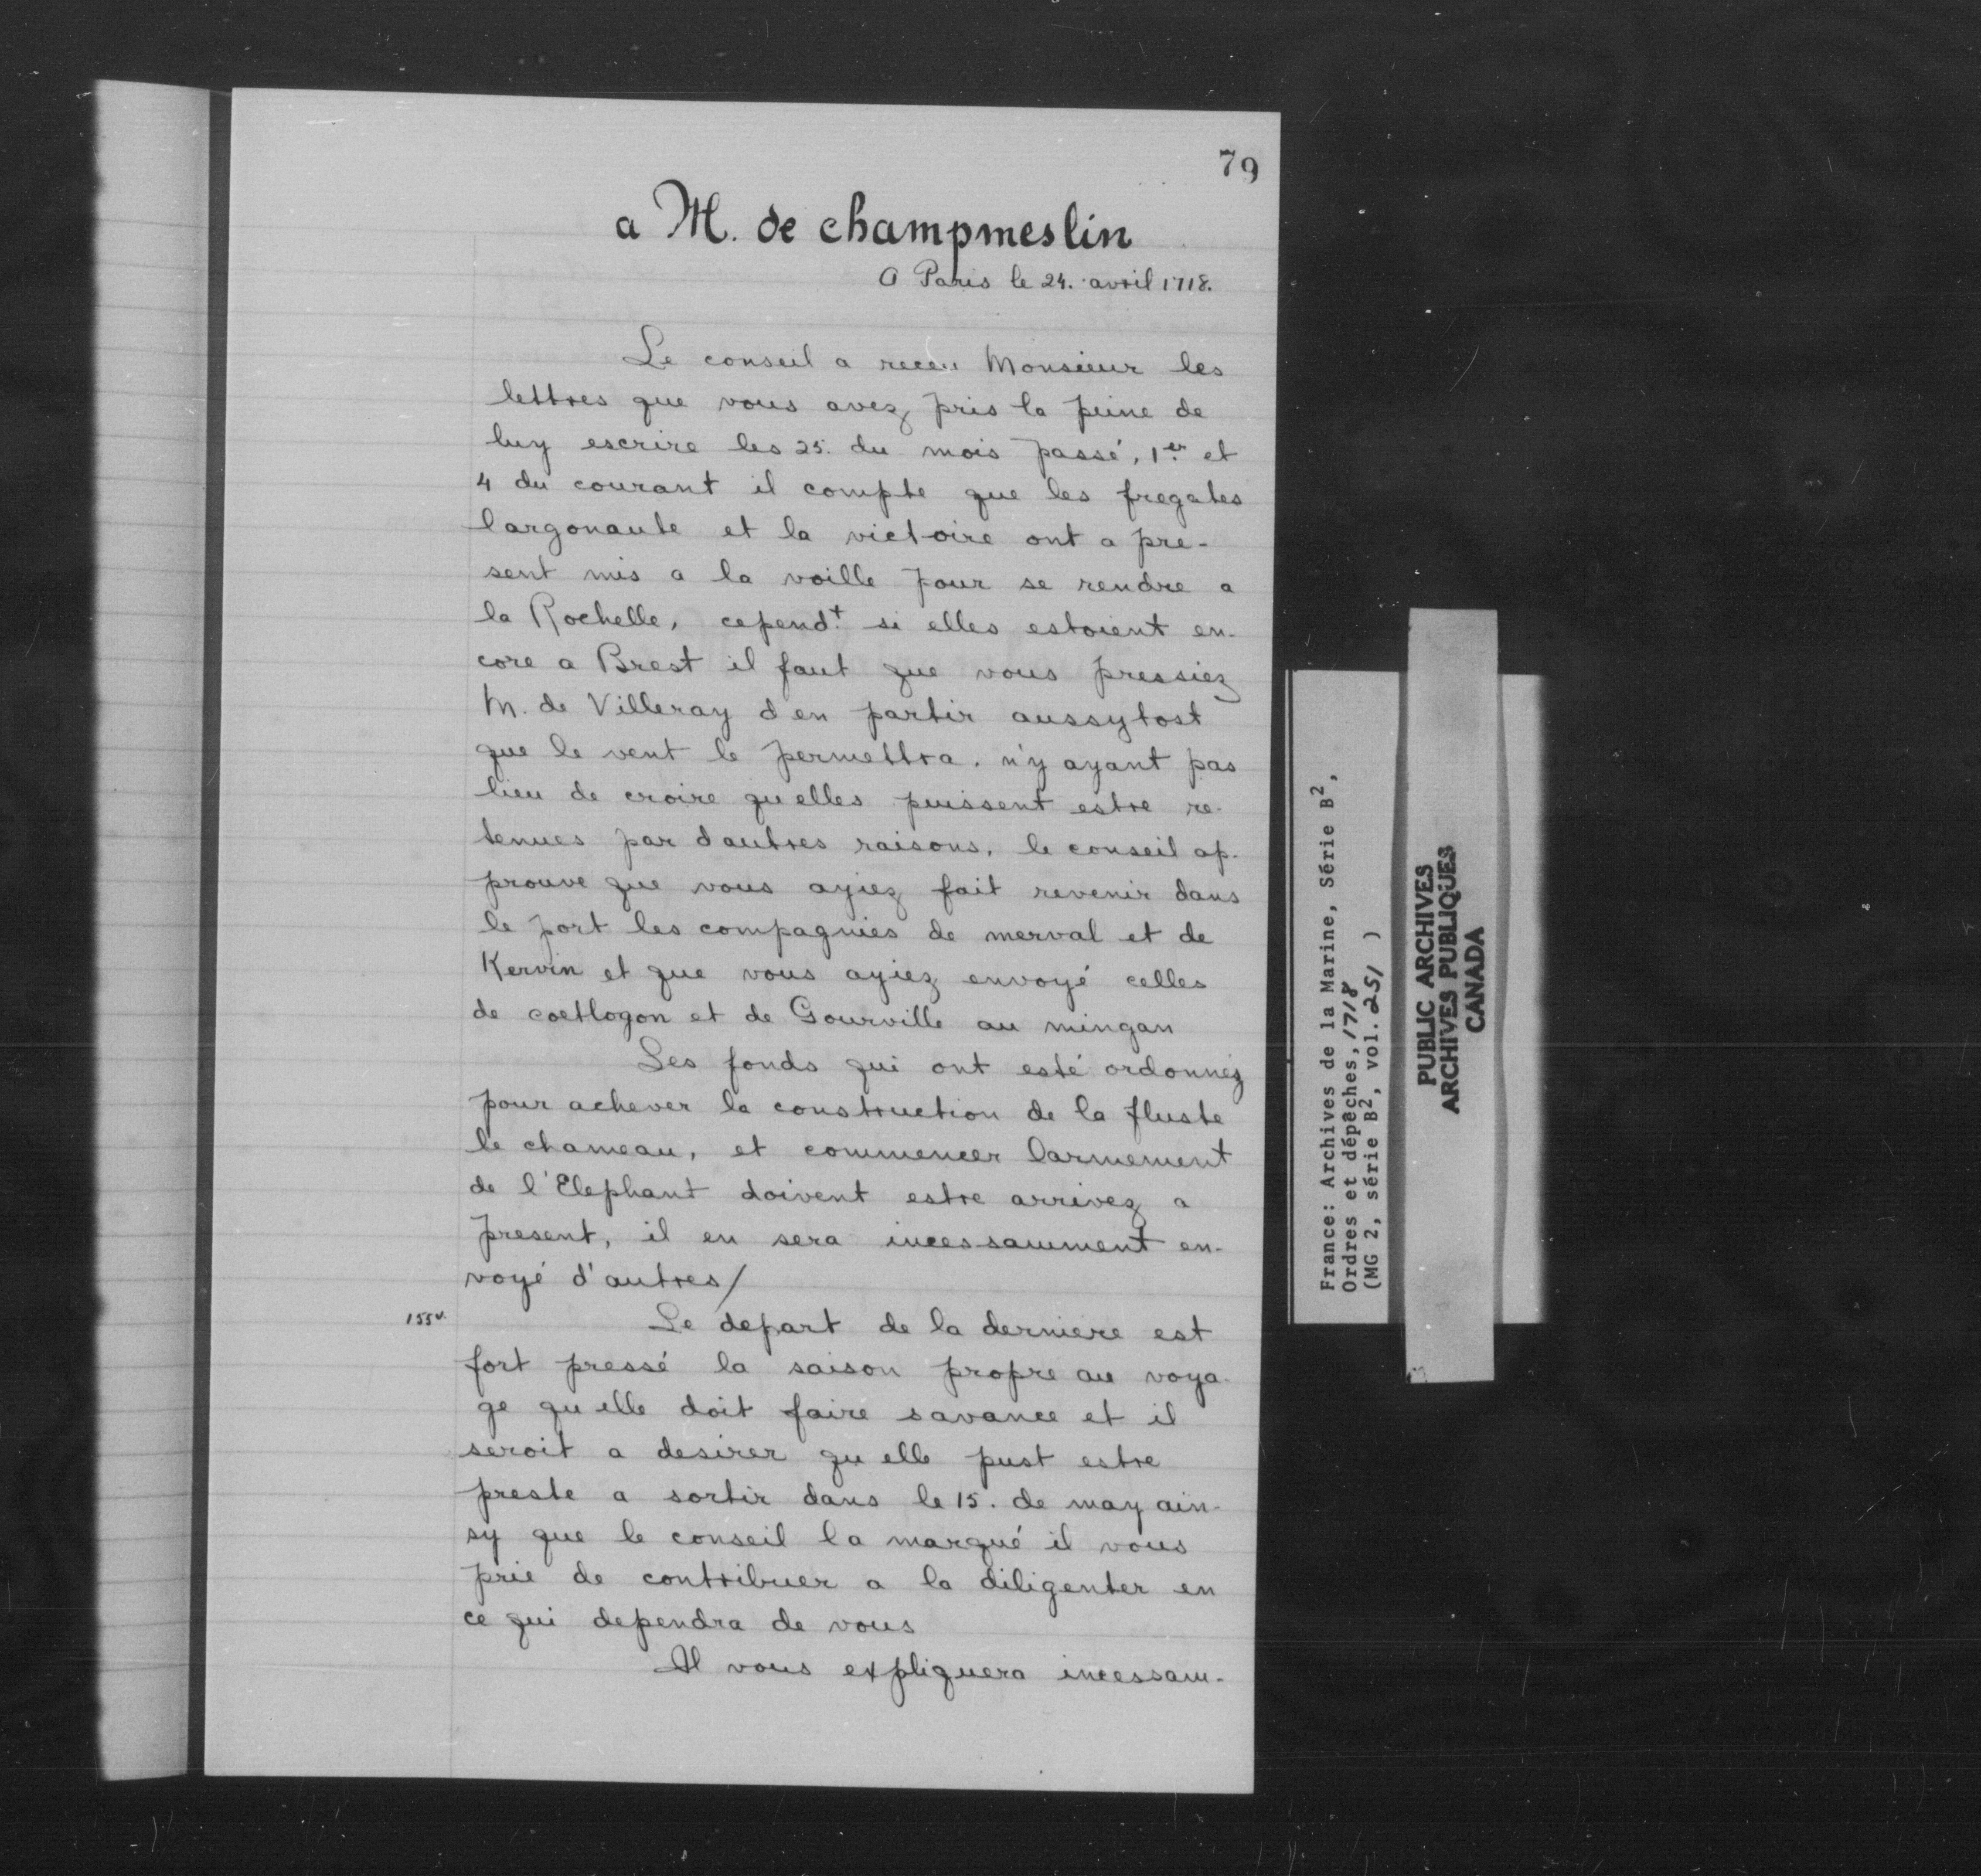 79
a M. de champmeslin
A Paris le 24. avril 1718.
Le conseil a receu Monsieur les
lettres que vous avez pris la peine de
luy escrire les 25. du mois passé, 1er et
4 du courant il compte que les fregates
largonaute et la victoire ont a pre-
sent mis a la voille pour se rendre a
la Rochelle, cependt si elles estoient en-
core a Brest il faut que vous pressiez
M. de Villeray d en partir aussytost
que le vent le permettra. n'y ayant pas
lieu de croire qu elles puissent estre re-
tenues par d autres raisons. le conseil ap-
prouve que vous ayiez fait revenir dans
le port les compagnies de merval et de
Kervin et que vous ayiez envoyé celles
de coetlogon et de Gourville au mingan
Les fonds qui ont esté ordonnez
pour achever la construction de la fluste
le chameau, et commencer larmement
de l'Elephant doivent estre arrivez a
present, il en sera incessamment en-
voyé d'autres/
155v.
Le depart de la derniere est
fort pressé la saison propre au voya-
ge qu elle doit faire savance et il
seroit a desirer qu elle pust estre
preste a sortir dans le 15. de may ain-
sy que le conseil la marqué il vous
prie de contribuer a la diligenter en
ce qui dependra de vous
Il vous expliquera incessam-
France: Archives de la Marine, Série B2,
Ordres et dépêches, 1718
(MG 2, série B2, vol. 251 )
PUBLIC ARCHIVES
ARCHIVES PUBLIQUES
CANADA